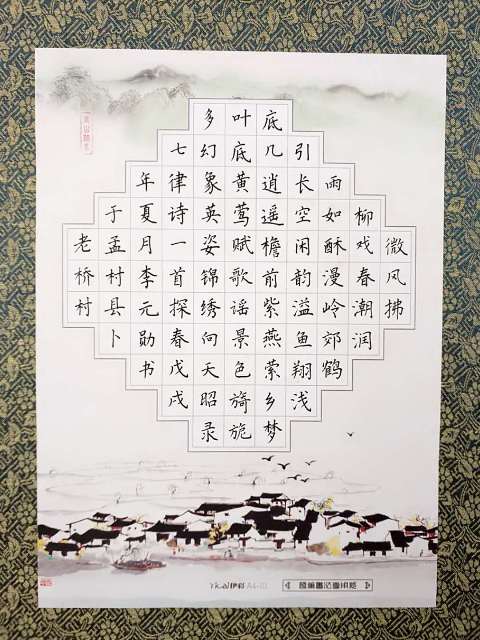 微风拂
柳戏春潮润
雨如酥漫岭郊鹤
引长空闲韵溢鱼翔浅
底几逍遥檐前紫燕萦乡梦
叶底黄莺赋歌谣景色旖旎
多幻象英姿锦绣向天昭录
七律诗一首探春戊戌
年夏月李元勋书
于孟村县卜
老桥村
伊彩